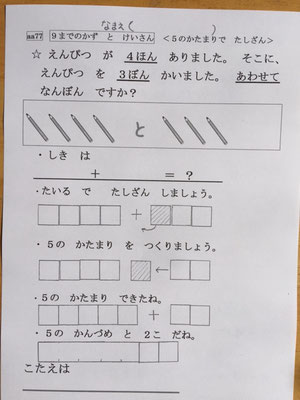 なまえ(　　　　)
aa77 9までのかず と けいさん <5のかたまりで たしざん>
☆ えんぴつ が 4ほん ありました。 そこに、
えんぴつ を 3ぼん かいました。 あわせて
なんぼん ですか?
と
・しき は
+ = ?
・たいる で たしざん しましょう。
+
・5の かたまり を つくりましょう。
←
・5の かたまり できたね。
+
・5の かんづめ と 2こ だね。
こたえは